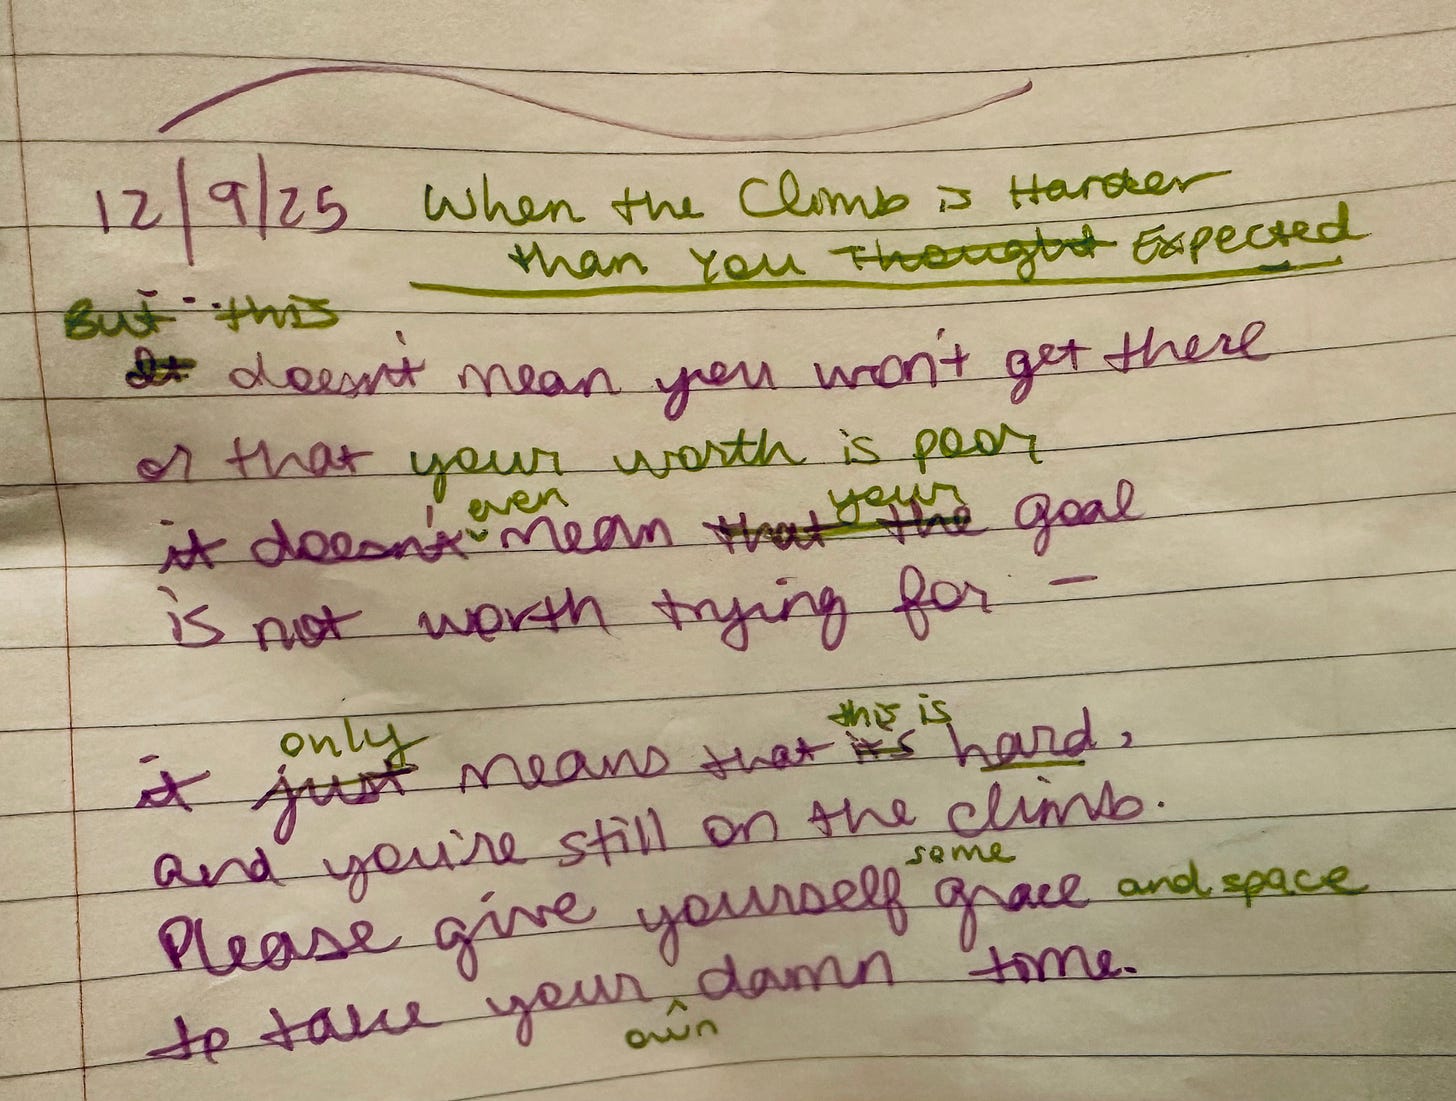 12/9/25 When the Climb is Harder
than you Thought Expected
But this
It doesn't mean you won't get there
or that your worth is poor
even your
it doesn't mean that the goal
is not worth trying for –
only this is
it just means that it's hard,
and you're still on the climb.
some
Please give yourself grace and space
to take your damn time.
own